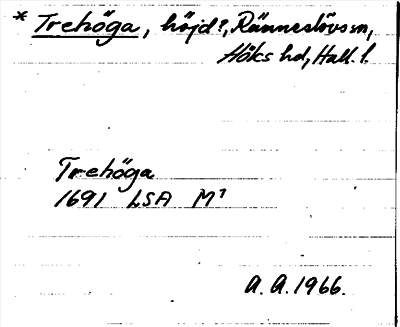 * Trehöga, höjd?, Ränneslövs sn,
Höks hd, Hall. l.
Trehöga
1691 LSA M¹
A. A. 1966.